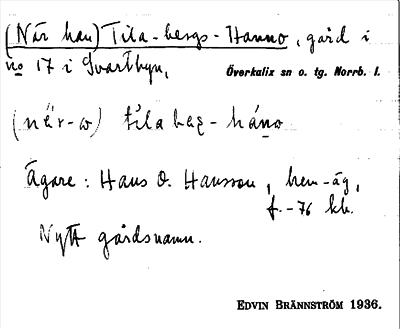 (När han) Tila-bergs-Hanno, gård i
no 17 i Svartbyn,
Överkalix sn o. tg. Norrb. l.
(nä́r-w) tìlabæʀ-háno
Ägare: Hans O. Hansson, hem-äg,
f.-76 kh.
Nytt gårdsnamn.
EDVIN BRÄNNSTRÖM 1936.